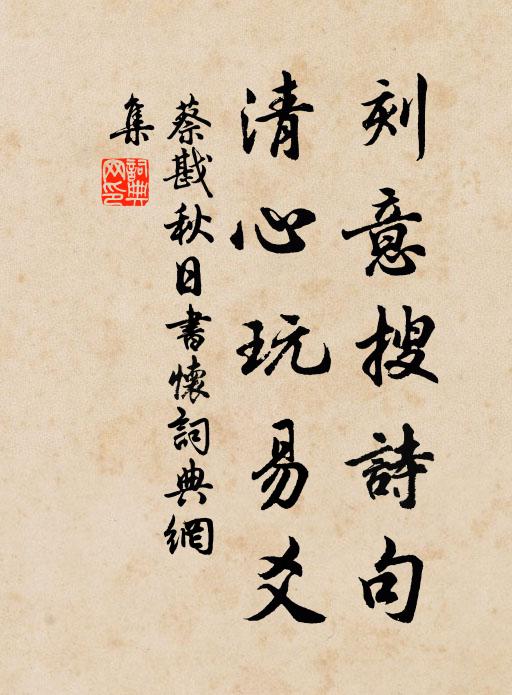 刻意搜詩句
清心玩易爻
蔡戡秋日書懷詞典網
集
詞典網印